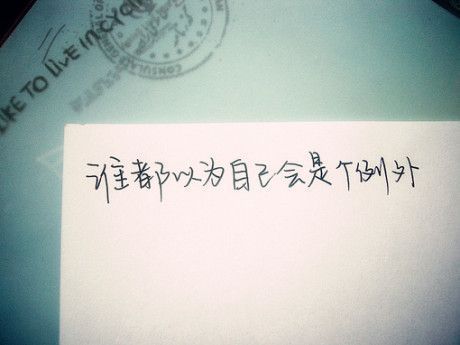 LIKE TO LIVE IN
CONSULAR
谁都以为自己会是个例外